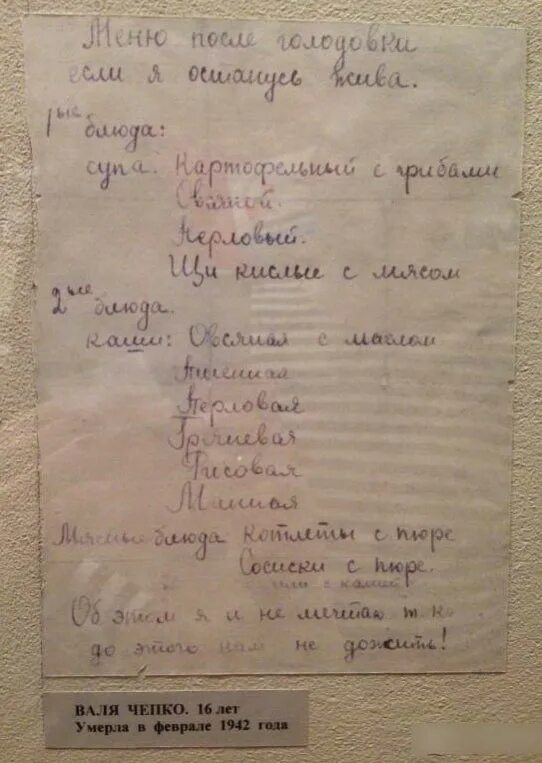 Меню после голодовки
если я останусь жива.
1ые блюда:
супа. Картофельный с грибами
Овсяной.
Перловый.
Щи кислые с мясом
2ые блюда.
каши: Овсяная с маслом
Пшенная
Перловая
Гречневая
Рисовая
Манная
Мясные блюда Котлеты с пюре
Сосиски с пюре.
или с кашей
Об этом я и не мечтаю т. к.
до этого нам не дожить!
ВАЛЯ ЧЕПКО. 16 лет
Умерла в феврале 1942 года